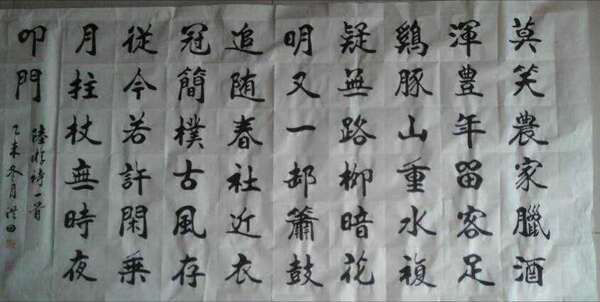 莫笑農家臘酒
渾豊年留客足
鷄豚山重水複
疑無路柳暗花
明又一邨簫鼓
追随春社近衣
冠簡樸古風存
從今若許閑乗
月柱杖無時夜
叩門
陸游詩一首
乙未冬月